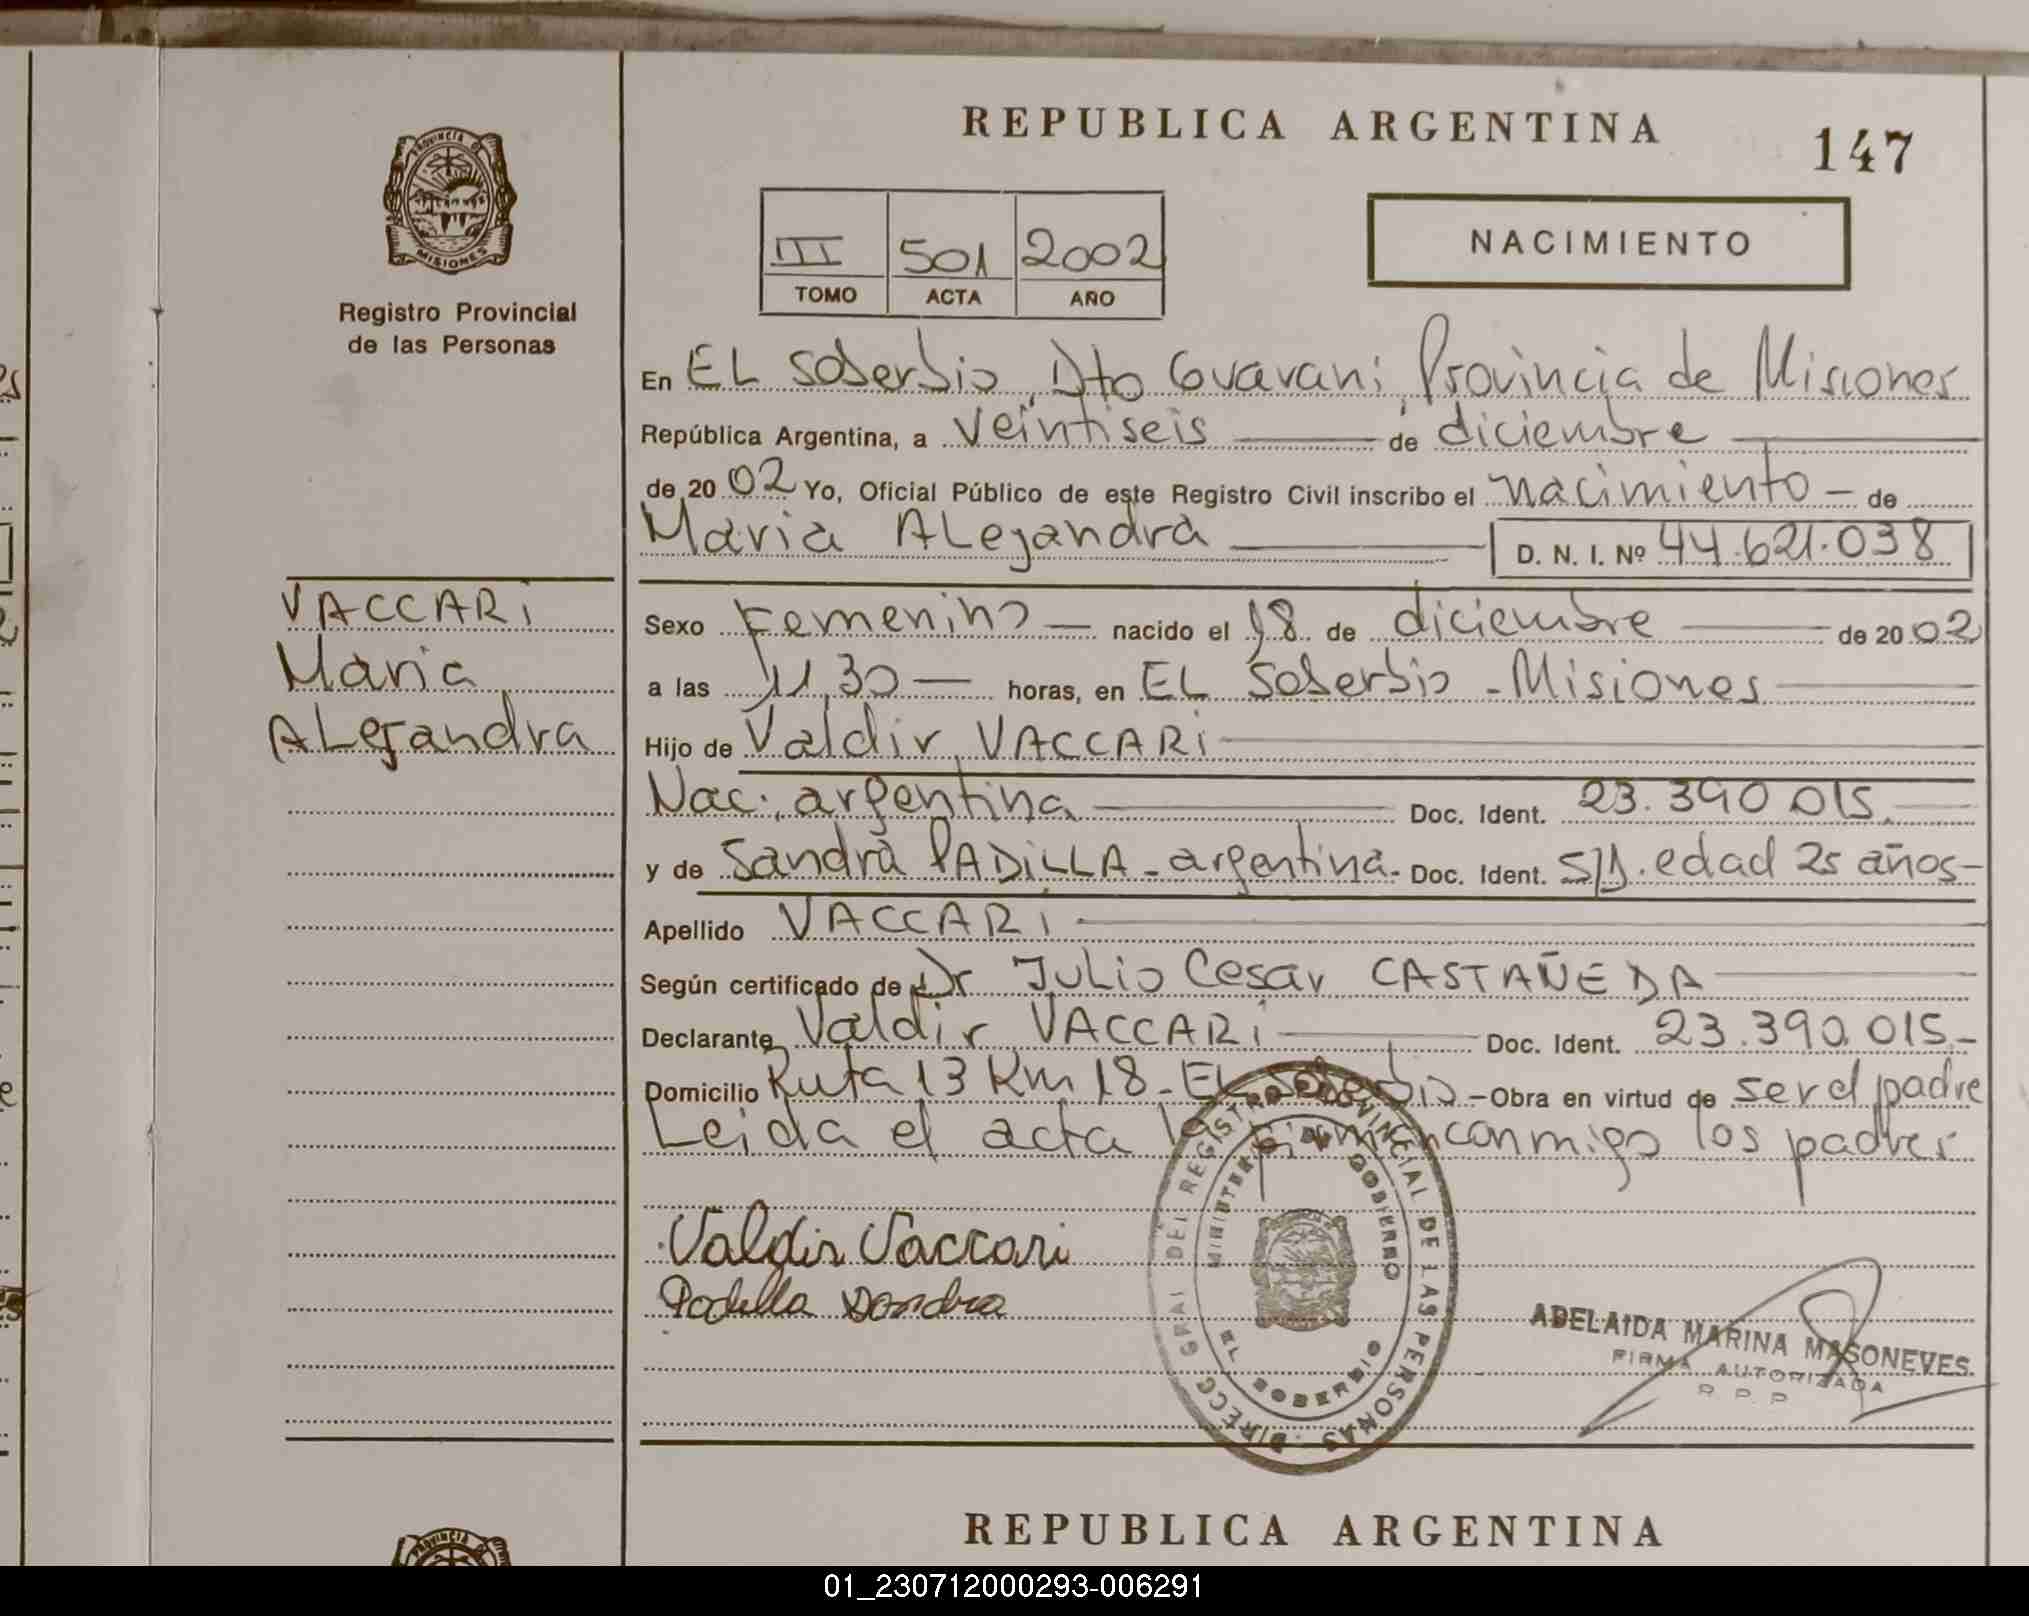 REPUBLICA ARGENTINA
147
PROVINCIA DE
MISIONES
Registro Provincial
de las Personas
III 501 2002
TOMO ACTA AÑO
NACIMIENTO
En EL Soberbio, Dto Guarani, Provincia de Misiones
República Argentina, a veintiseis — de diciembre —
de 2002 Yo, Oficial Público de este Registro Civil inscribo el nacimiento — de
Maria Alejandra — D. N. I. Nº 44.621.038
VACCARi
Maria
Alejandra
Sexo Femenino — nacido el 18 de diciembre — de 2002
a las 11,30 — horas, en EL Soberbio - Misiones —
Hijo de Valdir VACCARi —
Nac. argentina — Doc. Ident. 23.390.015 —
y de Sandra PADiLLA - argentina - Doc. Ident. S/D. edad 25 años —
Apellido VACCARi —
Según certificado de Dr Julio Cesar CASTAÑEDA —
Declarante Valdir VACCARi — Doc. Ident. 23.390.015 —
Domicilio Ruta 13 Km 18 - EL Soberbio - Obra en virtud de ser el padre
Leida el acta la firman conmigo los padres
Valdir Vaccari
Padilla Sandra
DIRECC GRAL DEL REGISTRO PROVINCIAL DE LAS PERSONAS
MINISTERIO DE GOBIERNO
EL SOBERBIO
ADELAIDA MARINA MASONEVES
FIRMA AUTORIZADA
R. P. P.
REPUBLICA ARGENTINA
PROVINCIA DE
01_230712000293-006291